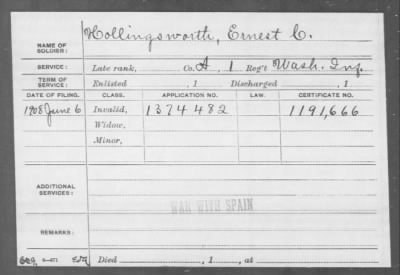 NAME OF SOLDIER: Hollingsworth, Ernest C.
SERVICE: Late rank, Co. A, 1 Reg't Wash. Inf.
TERM OF SERVICE: Enlisted , 1 Discharged , 1
DATE OF FILING. CLASS. APPLICATION NO. LAW. CERTIFICATE NO.
1908 June 6 Invalid, 1374482 1191,666
Widow,
Minor,
ADDITIONAL SERVICES:
WAR WITH SPAIN
REMARKS:
Died , 1 , at